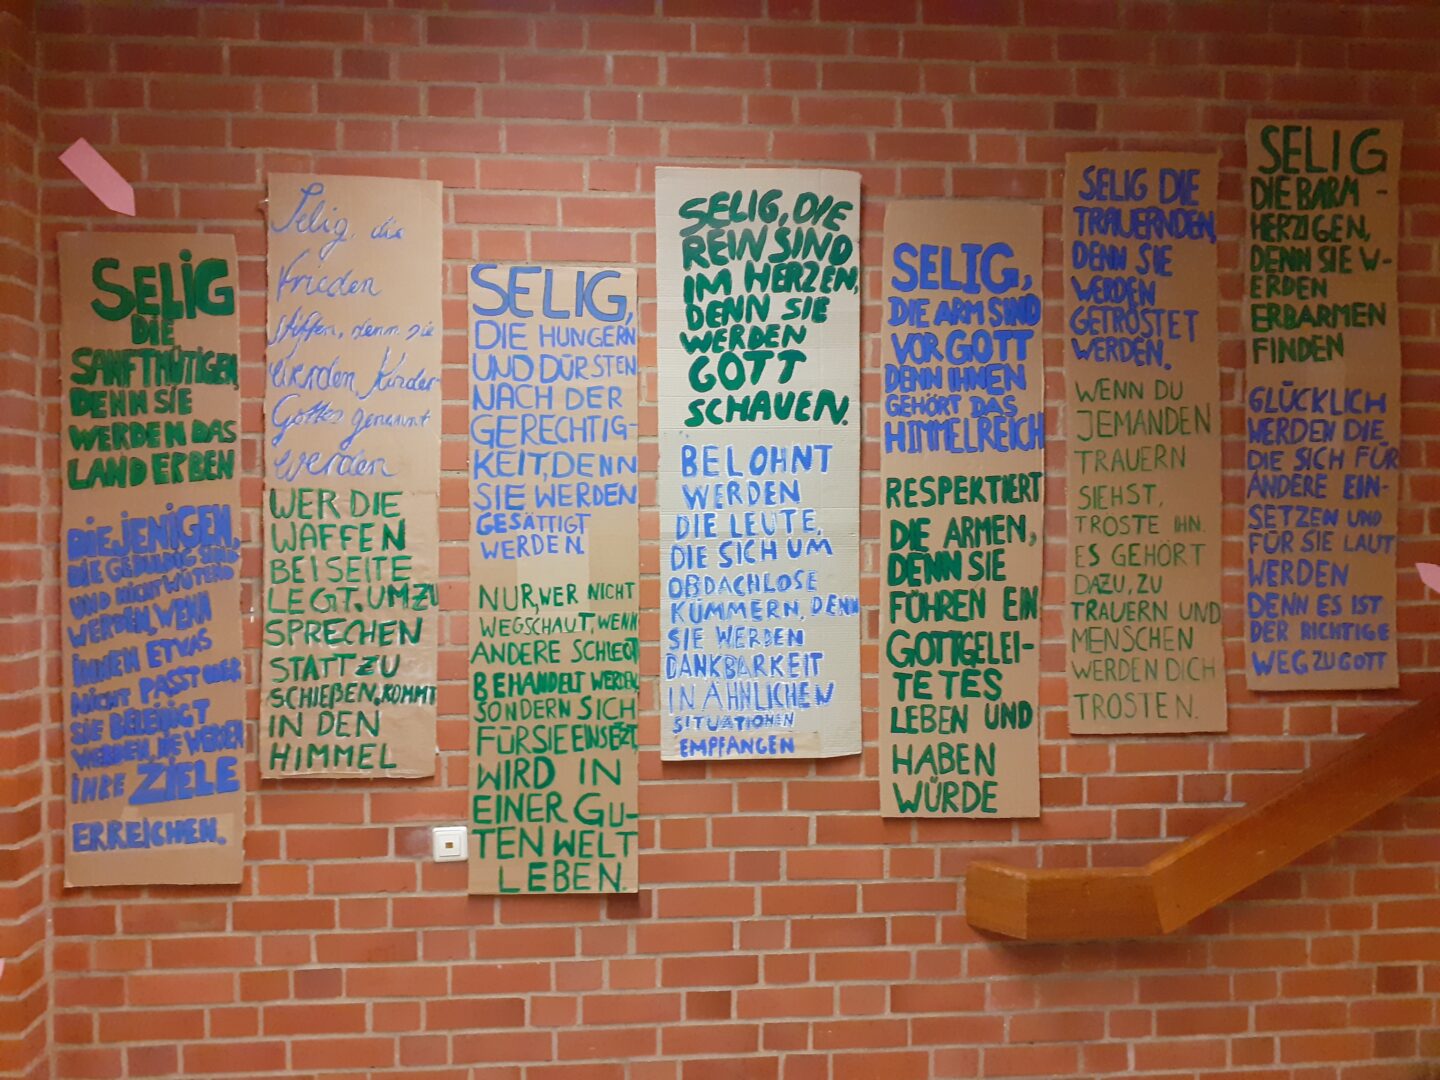 SELIG
DIE
SANFTMÜTIGEN,
DENN SIE
WERDEN DAS
LAND ERBEN
DIEJENIGEN,
DIE GEDULDIG SIND
UND NICHT WÜTEND
WERDEN, WENN
IHNEN ETWAS
NICHT PASST ODER
SIE BELEIDIGT
WERDEN, DIE WERDEN
IHRE ZIELE
ERREICHEN.
Selig, die
Frieden
stiften, denn sie
werden Kinder
Gottes genannt
werden
WER DIE
WAFFEN
BEISEITE
LEGT, UM ZU
SPRECHEN
STATT ZU
SCHIEẞEN, KOMMT
IN DEN
HIMMEL
SELIG,
DIE HUNGERN
UND DÜRSTEN
NACH DER
GERECHTIG-
KEIT, DENN
SIE WERDEN
GESÄTTIGT
WERDEN.
NUR, WER NICHT
WEGSCHAUT, WENN
ANDERE SCHLECHT
BEHANDELT WERDEN,
SONDERN SICH
FÜR SIE EINSETZT,
WIRD IN
EINER GU-
TEN WELT
LEBEN.
SELIG, DIE
REIN SIND
IM HERZEN,
DENN SIE
WERDEN
GOTT
SCHAUEN.
BELOHNT
WERDEN
DIE LEUTE,
DIE SICH UM
OBDACHLOSE
KÜMMERN, DENN
SIE WERDEN
DANKBARKEIT
IN ÄHNLICHEN
SITUATIONEN
EMPFANGEN
SELIG,
DIE ARM SIND
VOR GOTT
DENN IHNEN
GEHÖRT DAS
HIMMELREICH
RESPEKTIERT
DIE ARMEN,
DENN SIE
FÜHREN EIN
GOTTGELEI-
TETES
LEBEN UND
HABEN
WÜRDE
SELIG DIE
TRAUERNDEN,
DENN SIE
WERDEN
GETRÖSTET
WERDEN.
WENN DU
JEMANDEN
TRAUERN
SIEHST,
TRÖSTE IHN.
ES GEHÖRT
DAZU, ZU
TRAUERN UND
MENSCHEN
WERDEN DICH
TRÖSTEN.
SELIG
DIE BARM-
HERZIGEN,
DENN SIE W-
ERDEN
ERBARMEN
FINDEN
GLÜCKLICH
WERDEN DIE,
DIE SICH FÜR
ANDERE EIN-
SETZEN UND
FÜR SIE LAUT
WERDEN
DENN ES IST
DER RICHTIGE
WEG ZU GOTT